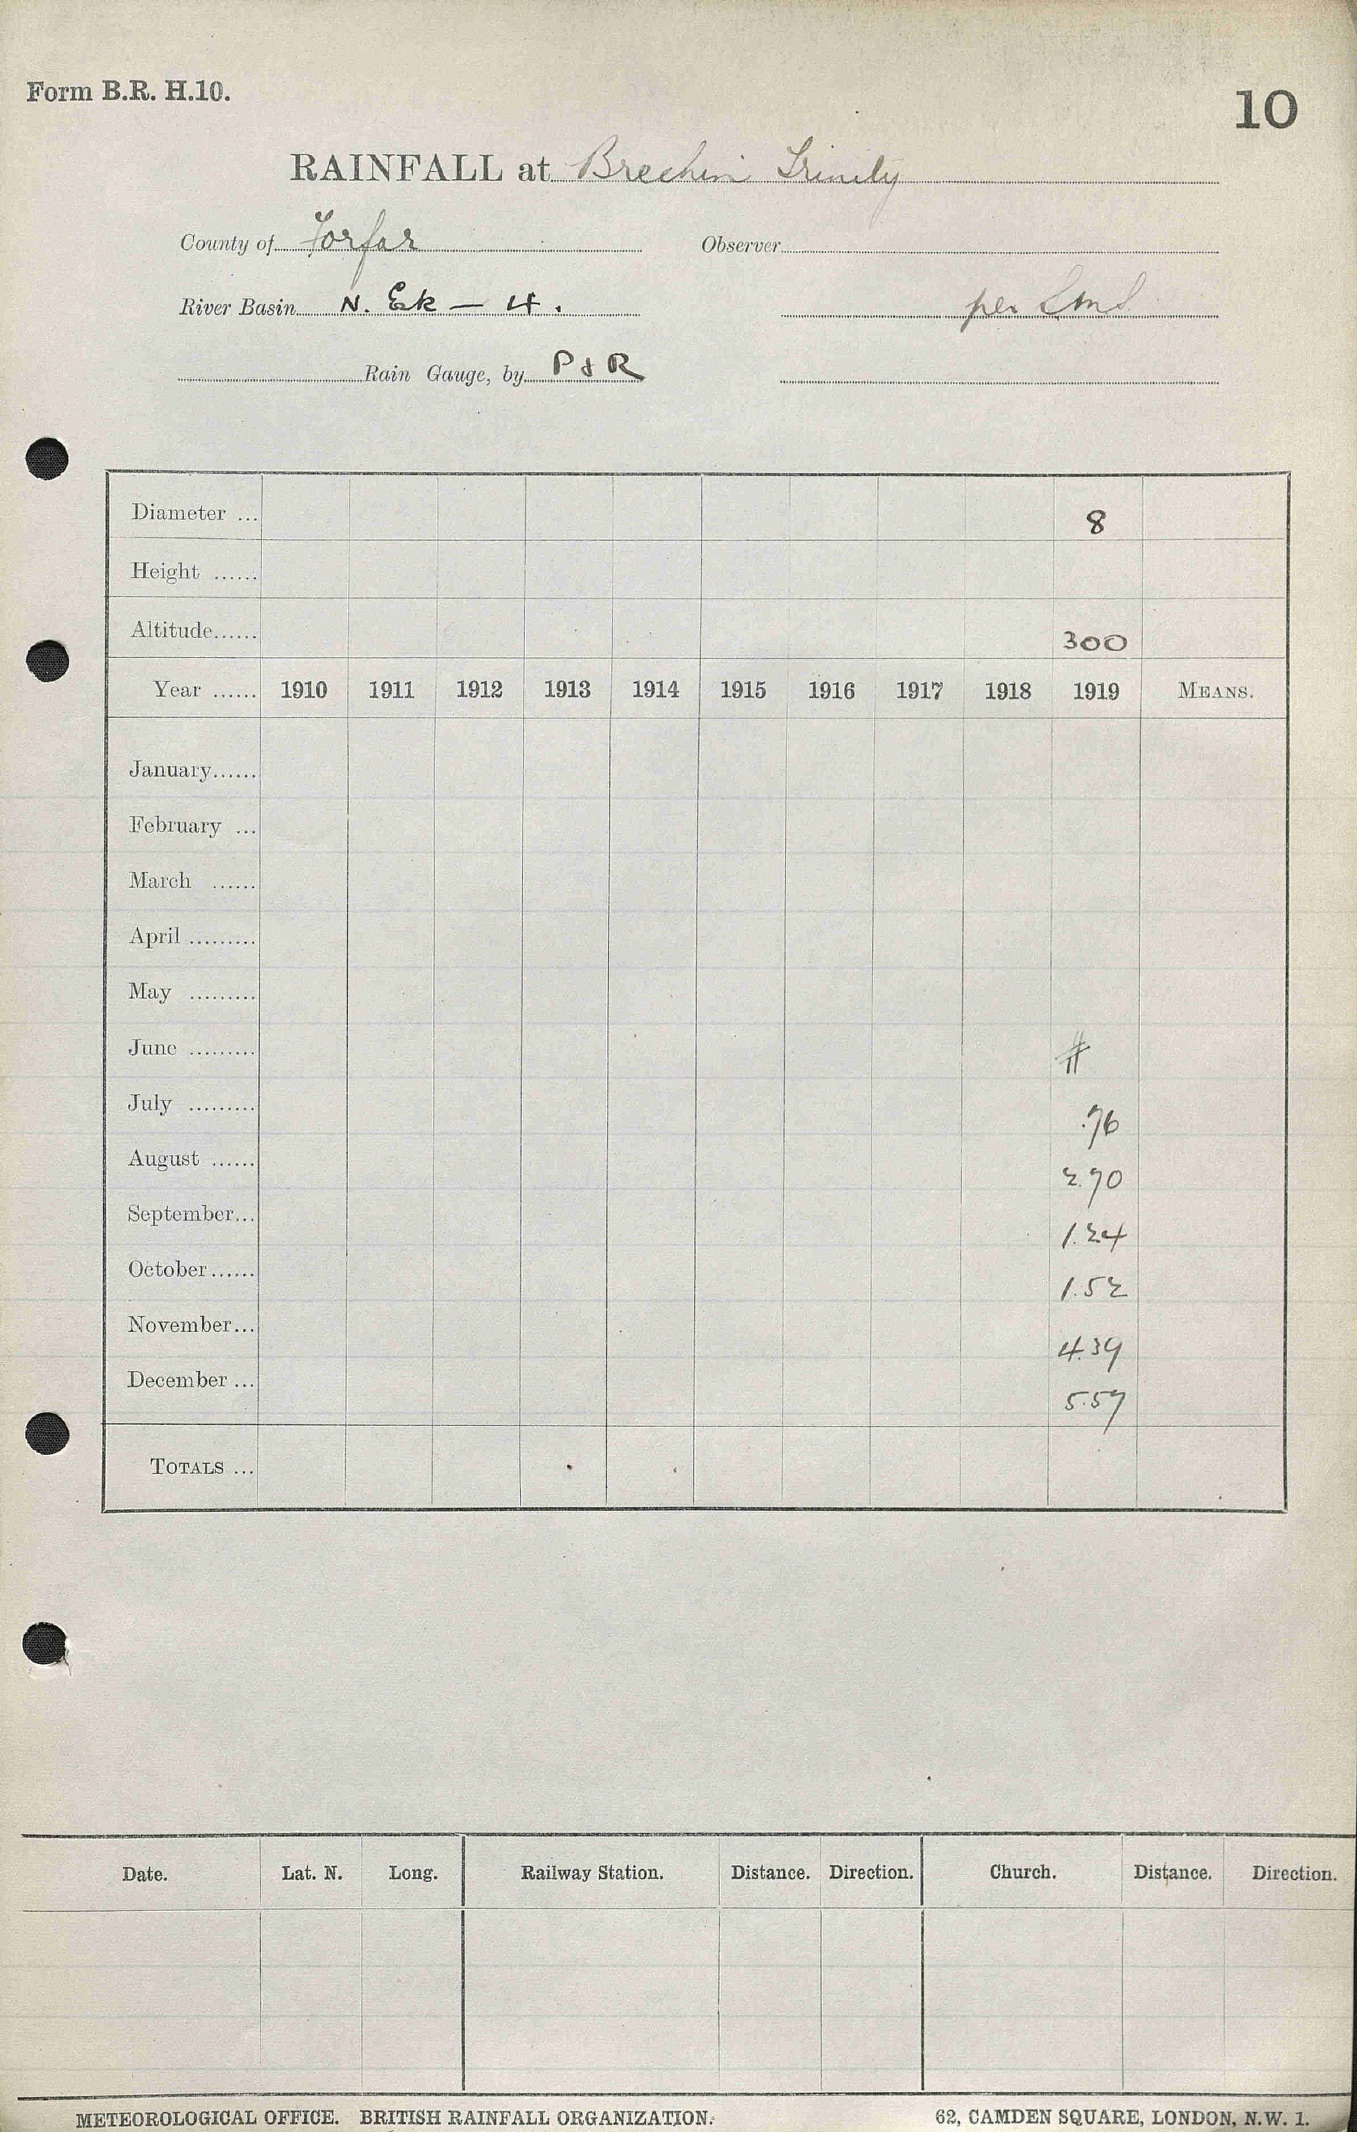 Form B.R. H.10.
10
RAINFALL at Brechin Trinity
County of Forfar Observer
River Basin N. Esk — 4. per
Rain Gauge, by P & R
Diameter ... 8
Height ......
Altitude...... 300
Year ...... 1910 1911 1912 1913 1914 1915 1916 1917 1918 1919 MEANS.
January......
February ...
March ......
April .........
May .........
June .........
July ......... .76
August ...... 2.70
September... 1.24
October...... 1.52
November... 4.39
December ... 5.57
TOTALS ...
Date. Lat. N. Long. Railway Station. Distance. Direction. Church. Distance. Direction.
METEOROLOGICAL OFFICE. BRITISH RAINFALL ORGANIZATION. 62, CAMDEN SQUARE, LONDON, N.W. 1.